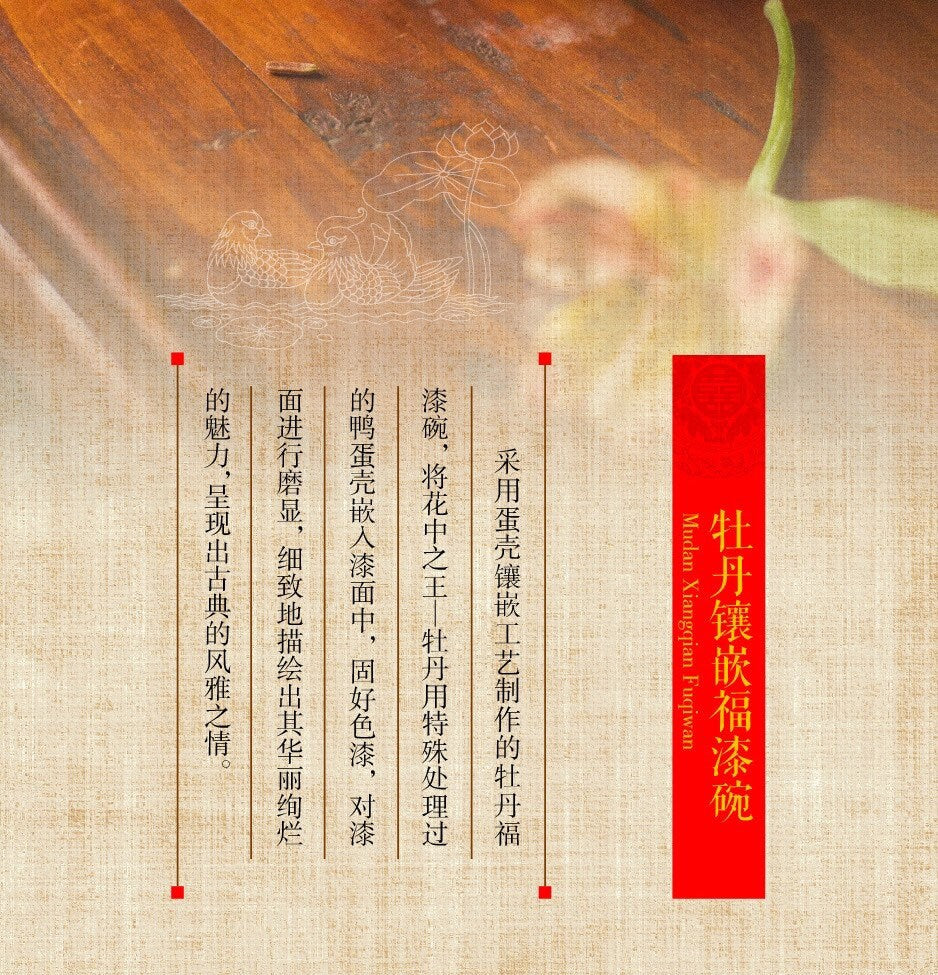 牡丹镶嵌福漆碗
Mudan Xiangqian Fuqiwan
采用蛋壳镶嵌工艺制作的牡丹福
漆碗，将花中之王—牡丹用特殊处理过
的鸭蛋壳嵌入漆面中，固好色漆，对漆
面进行磨显，细致地描绘出其华丽绚烂
的魅力，呈现出古典的风雅之情。